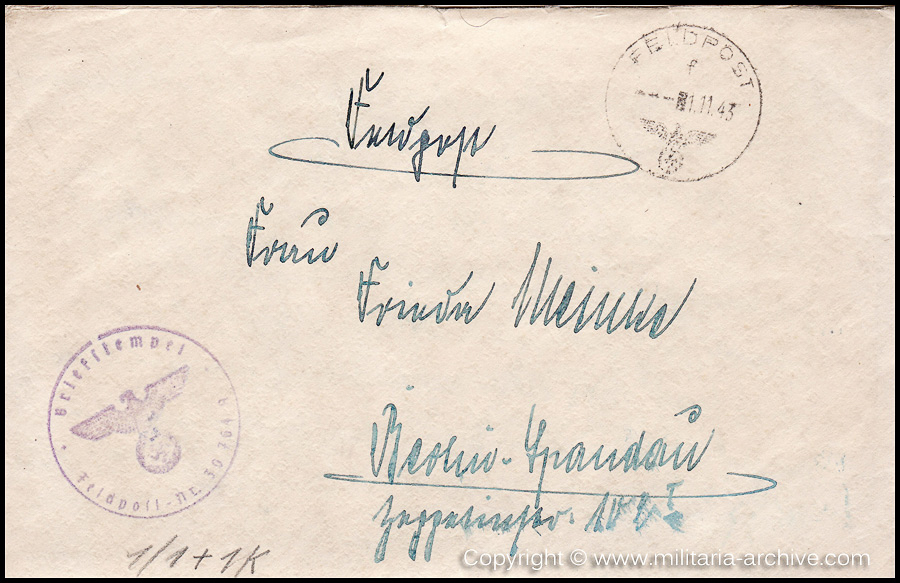 FELDPOST
f
1.11.43
Feldpost
Frau
Frieda Meinke
Berlin-Spandau
Zeppelinstr.
Briefstempel
Feldpost-Nr.
1/1+1K
Copyright © www.militaria-archive.com